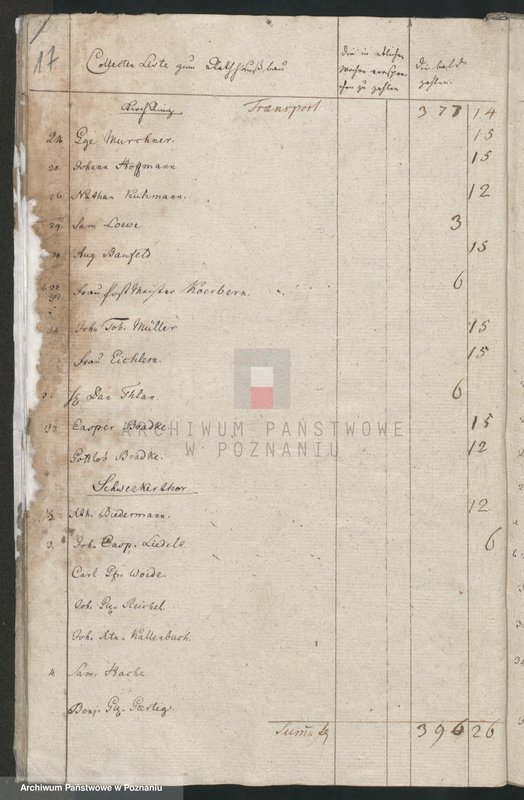 17
Collecten Liste zum Rathhauß bau
die in etlichen Wochen versprochen zu zahlen
die bald zahlen
Kirch Ring Transport 377 14
Gge Murschner. 15
20. Johann Hoffmann 15
26 Nathan Kuhmann. 12
29. Sam Loewe 3
Aug Baufeld 15
Frau forst Meister Koerbern 6
Joh. Tob. Müller 15
Frau Eichlern. 15
Dan Thlan. 6
Casper Bradke 15
Gottlob Bradke. 12
Schwezkerthor
Biedermann. 12
3. Joh. Casp. Liedelt 6
Carl Woide.
Joh. Reichel.
Joh. Kaltenbach.
4. Sam. Hache.
Benj.
Sum̄a 396 26
ARCHIWUM PAŃSTWOWE
W POZNANIU
Archiwum Państwowe w Poznaniu